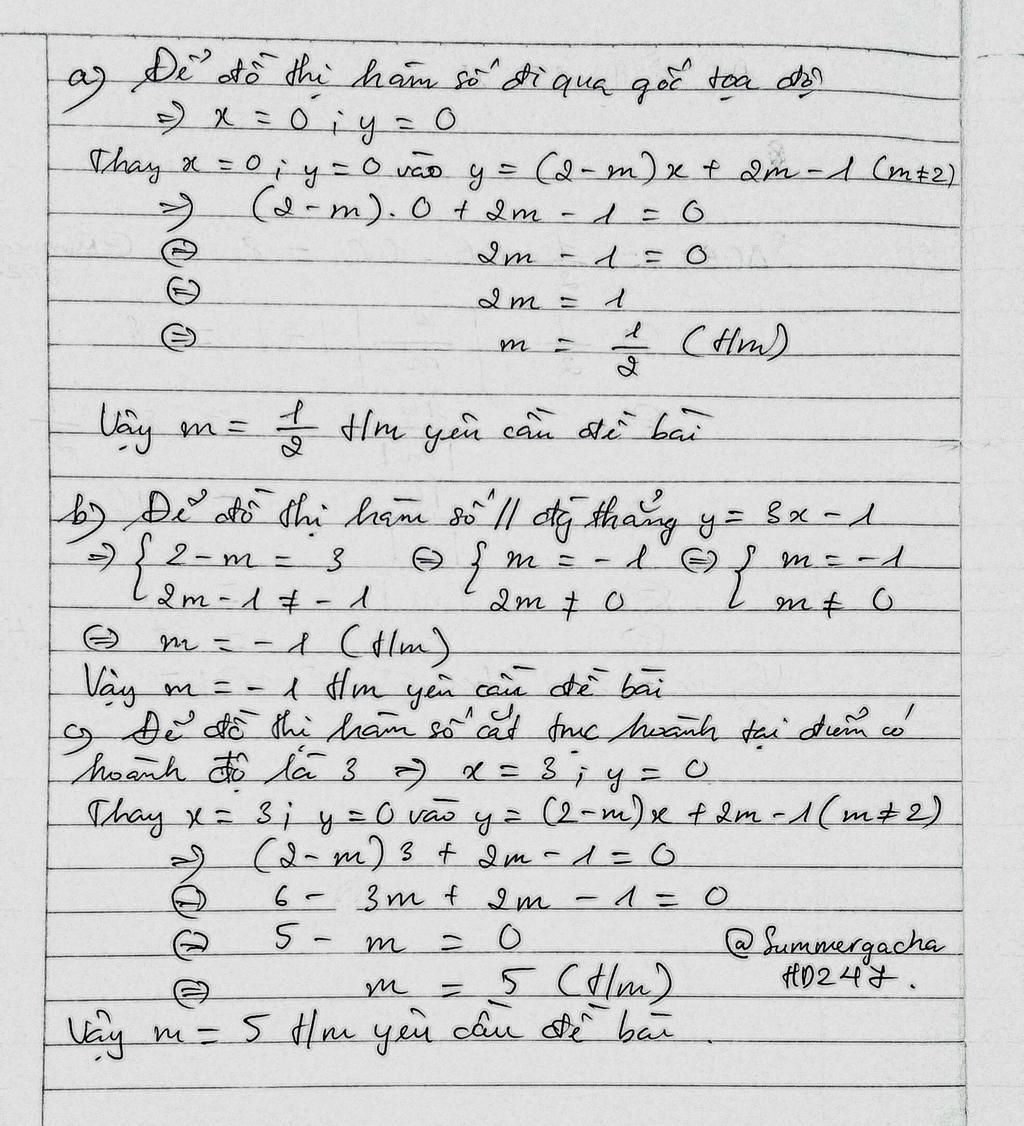 a) Để đồ thị hàm số đi qua gốc tọa độ
=> x = 0 ; y = 0
Thay x = 0 ; y = 0 vào y = (2 - m) x + 2m - 1 (m ≠ 2)
=> (2 - m) . 0 + 2m - 1 = 0
<=> 2m - 1 = 0
<=> 2m = 1
<=> m = 1/2 (t/m)
Vậy m = 1/2 t/m yêu cầu đề bài
b) Để đồ thị hàm số // đg thẳng y = 3x - 1
=> { 2 - m = 3 <=> { m = - 1 <=> { m = - 1
2m - 1 ≠ - 1 2m ≠ 0 m ≠ 0
<=> m = - 1 (t/m)
Vậy m = - 1 t/m yêu cầu đề bài
c) Để đồ thị hàm số cắt trục hoành tại điểm có
hoành độ là 3 => x = 3 ; y = 0
Thay x = 3 ; y = 0 vào y = (2 - m) x + 2m - 1 (m ≠ 2)
=> (2 - m) 3 + 2m - 1 = 0
<=> 6 - 3m + 2m - 1 = 0
<=> 5 - m = 0
@Summergacha
<=> m = 5 (t/m)
HD247.
Vậy m = 5 t/m yêu cầu đề bài.